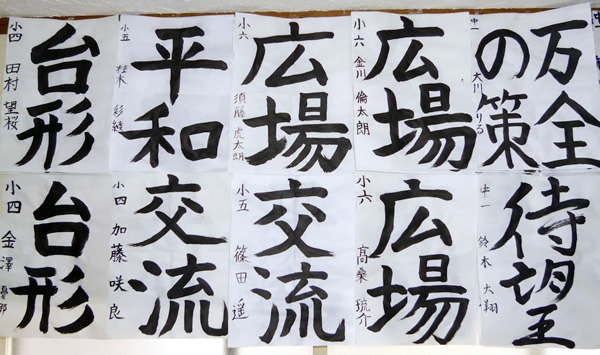 台形
小四 田村 望桜
平和
小五 桂木 彩緒
広場
小六 須藤 虎太朗
広場
小六 金川 倫太朗
万全の策
中一 大川
台形
小四 金澤
交流
小四 加藤 咲良
交流
小五 篠田 遥
広場
小六 髙桑 琉介
待望
中一 鈴木 大翔